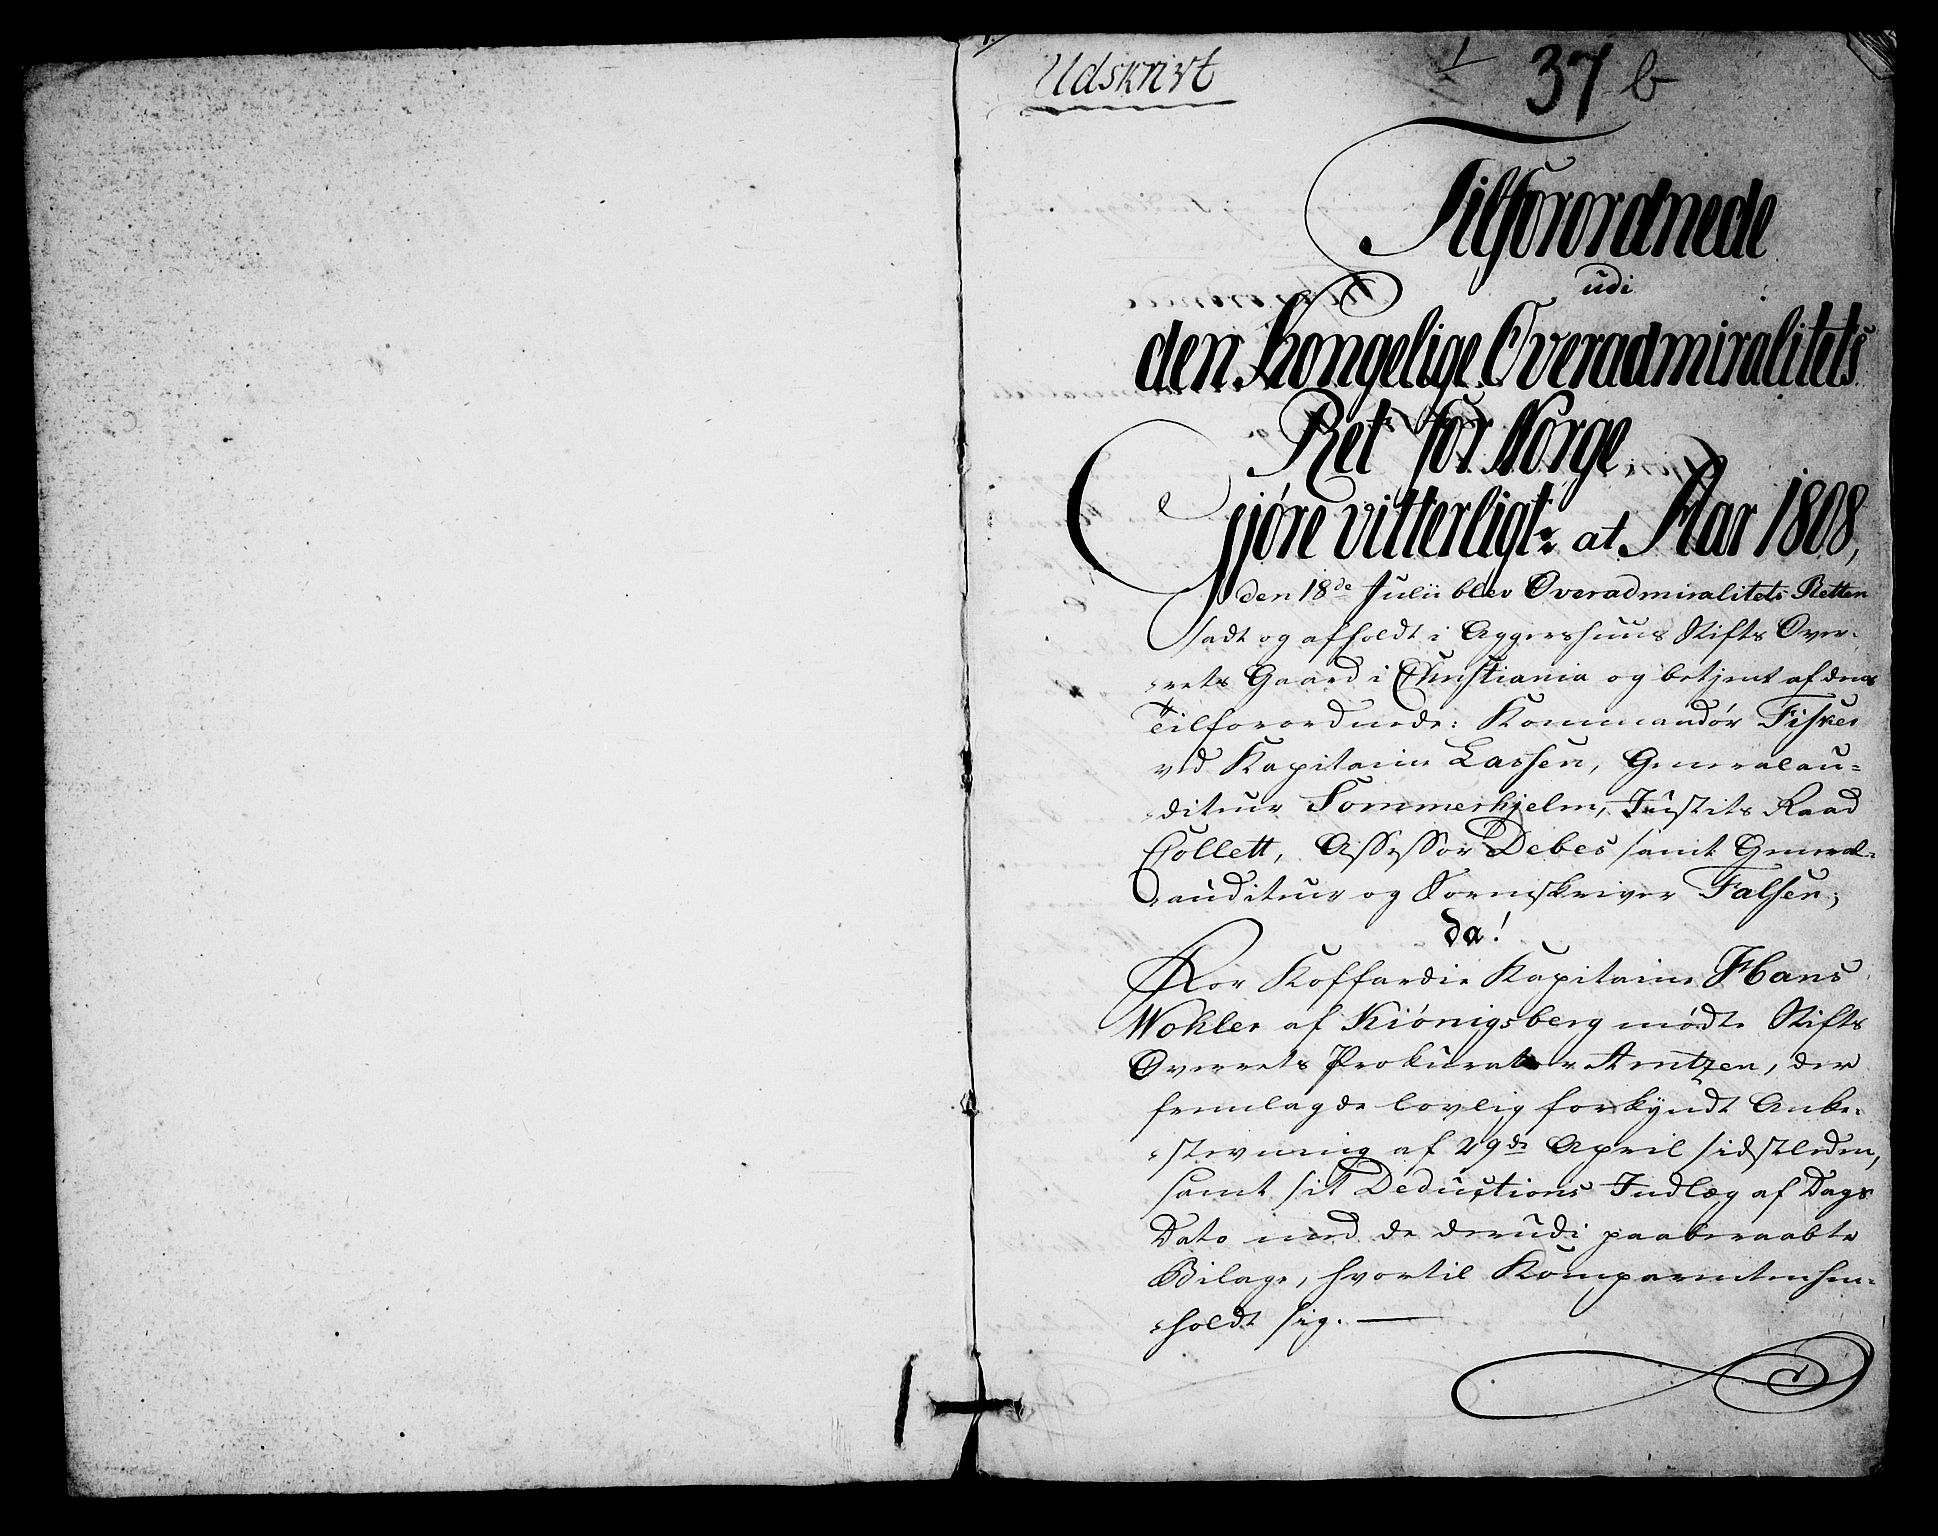 Udskrivt
1
37 b
Tilforordnede
udi
den Kongelige Overadmiralitets
Ret for Norge,
Gjøre vitterligt: at Aar 1808,
den 18de Julii blev Overadmiralitets Retten
sadt og afholdt i Aggershuus Stifts Over-
-rets Gaard i Christiania og betjent af dens
Tilforordnede: Kommandør Fisker
ved Kapitain Lassen, Generalau=
-diteur Sommerhjelm, Justits Raad
Collett, Assessor Debes samt General-
-auditeur og Sorenskriver Falsen;
da!
For Koffardie Kapitain Hans
Wohler af Kiónigsberg mødte Stifts
Overrets Prokurator Arntzen, der
fremlagde lovlig forkyndt Anke-
-stevning af 29de April sidstleden,
samt sit Deductions Indlæg af Dags
Dato med de derudi paaberaabte
Bilage, hvortil Komparenten hen-
-holdt sig. —